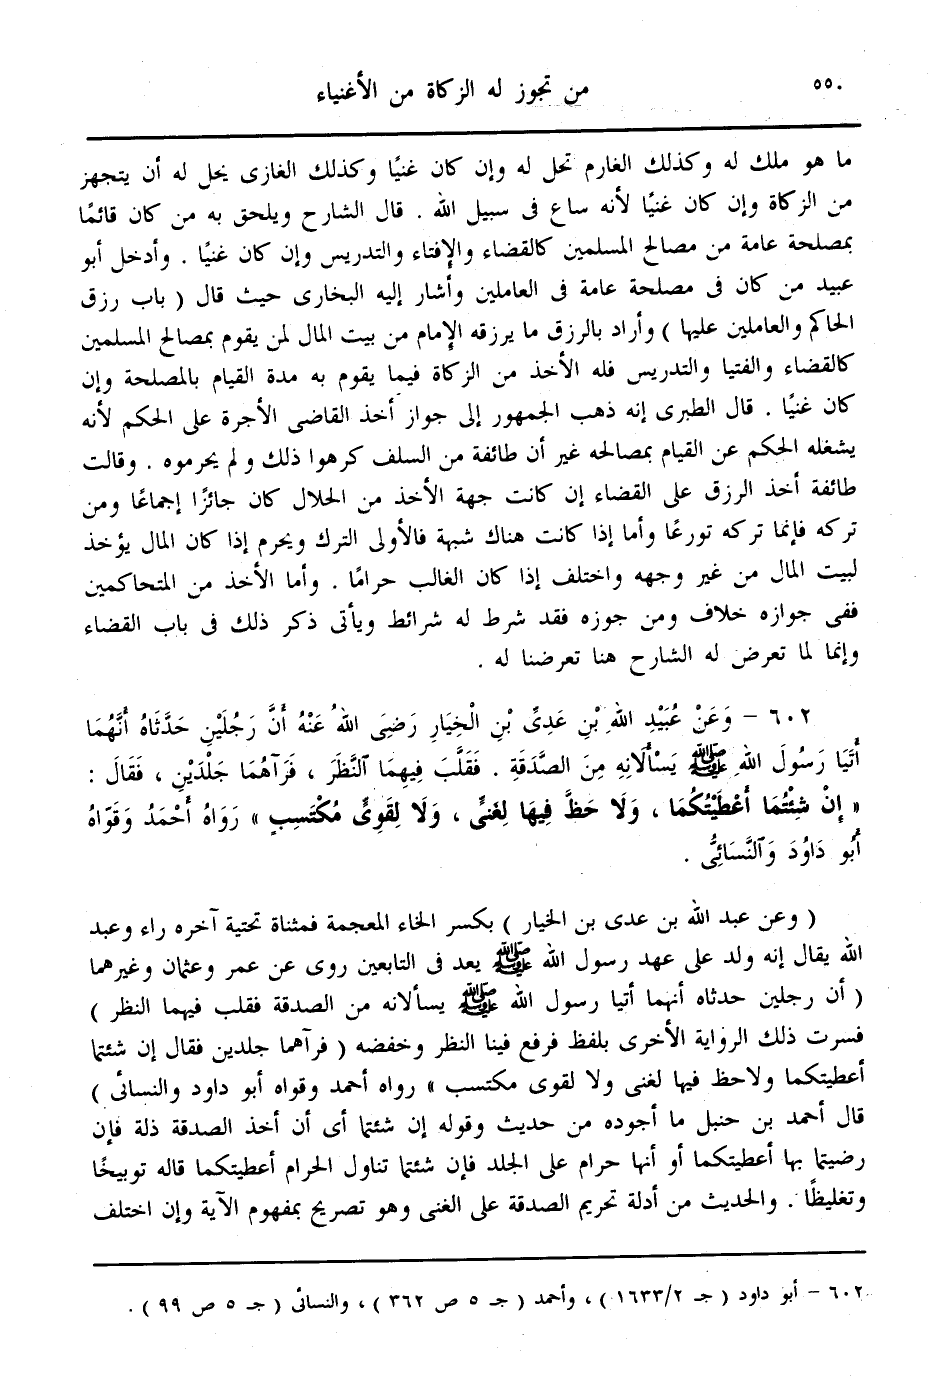 ٥٥٠
من تجوز له الزكاة من الأغنياء
ما هو ملك له وكذلك الغارم تحل له وإن كان غنيًا وكذلك الغازى يحل له أن يتجهز
من الزكاة وإن كان غنيًا لأنه ساع فى سبيل الله . قال الشارح ويلحق به من كان قائمًا
بمصلحة عامة من مصالح المسلمين كالقضاء والإفتاء والتدريس وإن كان غنيًا . وأدخل أبو
عبيد من كان فى مصلحة عامة فى العاملين وأشار إليه البخارى حيث قال ( باب رزق
الحاكم والعاملين عليها ) وأراد بالرزق ما يرزقه الإمام من بيت المال لمن يقوم بمصالح المسلمين
كالقضاء والفتيا والتدريس فله الأخذ من الزكاة فيما يقوم به مدة القيام بالمصلحة وإن
كان غنيًا . قال الطبرى إنه ذهب الجمهور إلى جواز أخذ القاضى الأجرة على الحكم لأنه
يشغله الحكم عن القيام بمصالحه غير أن طائفة من السلف كرهوا ذلك ولم يحرموه . وقالت
طائفة أخذ الرزق على القضاء إن كانت جهة الأخذ من الحلال كان جائزًا إجماعًا ومن
تركه فإنما تركه تورعًا وأما إذا كانت هناك شبهة فالأولى الترك ويحرم إذا كان المال يؤخذ
لبيت المال من غير وجهه واختلف إذا كان الغالب حرامًا . وأما الأخذ من المتحاكمين
ففى جوازه خلاف ومن جوزه فقد شرط له شرائط ويأتى ذكر ذلك فى باب القضاء
وإنما لما تعرض له الشارح هنا تعرضنا له .
٦٠٢ – وَعَنْ عُبَيْدِ اللهِ بْنِ عَدِىِّ بْنِ الْخِيَارِ رَضِىَ اللهُ عَنْهُ أَنَّ رَجُلَيْنِ حَدَّثَاهُ أَنَّهُمَا
أَتَيَا رَسُولَ اللهِ ﷺ يَسْأَلَانِهِ مِنَ الصَّدَقَةِ . فَقَلَّبَ فِيهِمَا ٱلنَّظَرَ ، فَرَآهُمَا جَلْدَيْنِ ، فَقَالَ :
« إِنْ شِئْتُمَا أَعْطَيْتُكُمَا ، وَلَا حَظَّ فِيهَا لِغَنىٍّ ، وَلَا لِقَوِىٍّ مُكْتَسِبٍ » رَوَاهُ أَحْمَدُ وَقَوَّاهُ
أَبُو دَاوُدَ وَٱلنَّسَائِىُّ .
( وعن عبد الله بن عدى بن الخيار ) بكسر الخاء المعجمة فمثناة تحتية آخره راء وعبد
الله يقال إنه ولد على عهد رسول الله ﷺ يعد فى التابعين روى عن عمر وعثمان وغيرهما
( أن رجلين حدثاه أنهما أتيا رسول الله ﷺ يسألانه من الصدقة فقلب فيهما النظر )
فسرت ذلك الرواية الأخرى بلفظ فرفع فينا النظر وخفضه ( فرآهما جلدين فقال إن شئتما
أعطيتكما ولاحظ فيها لغنى ولا لقوى مكتسب » رواه أحمد وقواه أبو داود والنسائى )
قال أحمد بن حنبل ما أجوده من حديث وقوله إن شئتما أى أن أخذ الصدقة ذلة فإن
رضيتما بها أعطيتكما أو أنها حرام على الجلد فإن شئتما تناول الحرام أعطيتكما قاله توبيخًا
وتغليظًا . والحديث من أدلة تحريم الصدقة على الغنى وهو تصريح بمفهوم الآية وإن اختلف
٦٠٢ – أبو داود ( جـ ١٦٣٣/٢ ) ، وأحمد ( جـ ٥ ص ٣٦٢ ) ، والنسائى ( جـ ٥ ص ٩٩ ) .